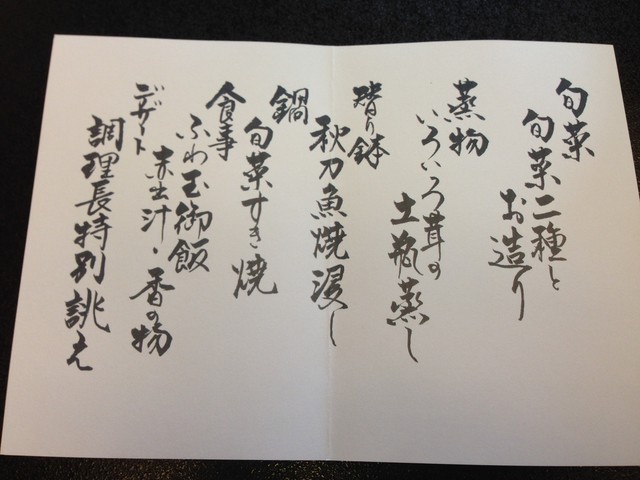 旬菜
旬菜二種と
お造り
蒸物
いろいろ茸の
土瓶蒸し
替り鉢
秋刀魚焼浸し
鍋
旬菜すき焼
食事
ふわ玉御飯
赤出汁・香の物
デザート
調理長特別誂え